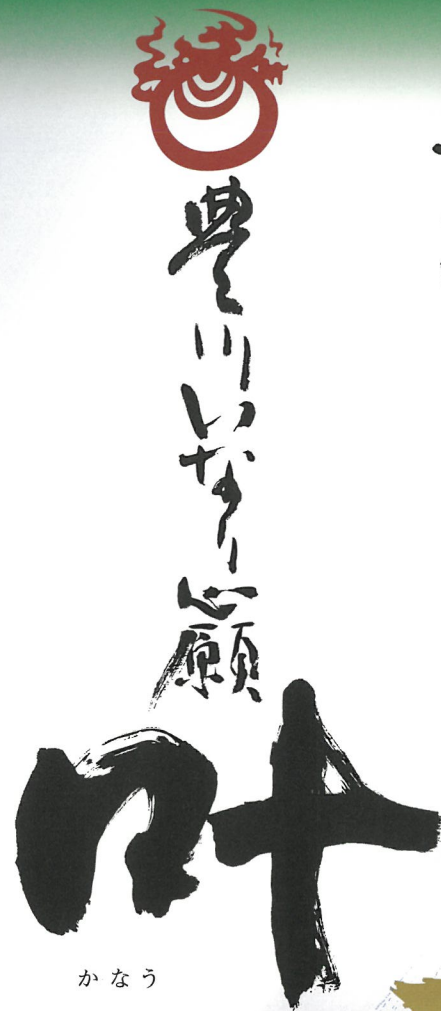 豊川いなり心願
叶
かなう